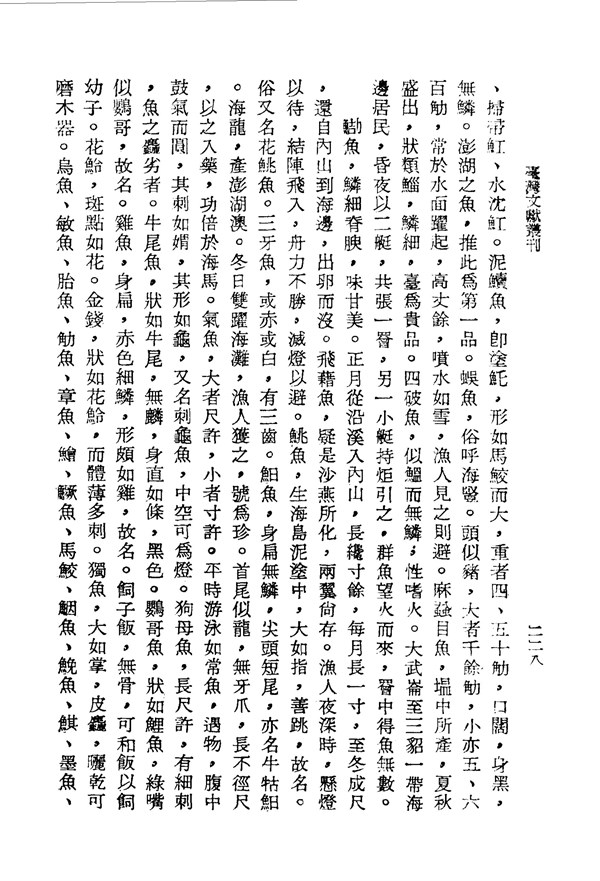 臺灣文獻叢刊
二二八
、掃帚魟、水沈魟。泥鰿魚,卽塗魠,形如馬鮫而大,重者四、五十觔,口闊,身黑,
無鱗。澎湖之魚,推此爲第一品。蜈魚,俗呼海豎。頭似豬,大者千餘觔,小亦五、六
百觔,常於水面躍起,高丈餘,噴水如雪,漁人見之則避。麻蝨目魚,塭中所產,夏秋
盛出,狀類鯔,鱗細,臺爲貴品。四破魚,似鰮而無鱗;性嗜火。大武崙至三貂一帶海
邊居民,昏夜以二艇,共張一罾,另一小艇持炬引之,群魚望火而來,罾中得魚無數。
魚,鱗細脊腴,味甘美。正月從沿溪入內山,長纔寸餘,每月長一寸,至冬成尺
,還自內山到海邊,出卵而沒。飛藉魚,疑是沙燕所化,兩翼尙存。漁人夜深時,懸燈
以待,結陣飛入,舟力不勝,滅燈以避。鮡魚,生海島泥塗中,大如指,善跳,故名。
俗又名花鮡魚。三牙魚,或赤或白,有三齒。䱇魚,身扁無鱗,尖頭短尾,亦名牛牯䱇
。海龍,產澎湖澳。冬日雙躍海灘,漁人獲之,號爲珍。首尾似龍,無牙爪,長不徑尺
,以之入藥,功倍於海馬。氣魚,大者尺許,小者寸許。平時游泳如常魚,遇物,腹中
鼓氣而圓,其刺如蝟,其形如龜,又名刺龜魚,中空可爲燈。狗母魚,長尺許,有細刺
,魚之麤劣者。牛尾魚,狀如牛尾,無麟,身直如條,黑色。鸚哥魚,狀如鯉魚,綠嘴
似鸚哥,故名。雞魚,身扁,赤色細鱗,形頗如雞,故名。飼子飯,無骨,可和飯以飼
幼子。花鮯,斑點如花。金錢,狀如花鮯,而體薄多刺。獨魚,大如掌,皮麤,曬乾可
磨木器。烏魚、敏魚、胎魚、魛魚、章魚、鱠、鱖魚、馬鮫、䱛魚、鮸魚、鯕、墨魚、